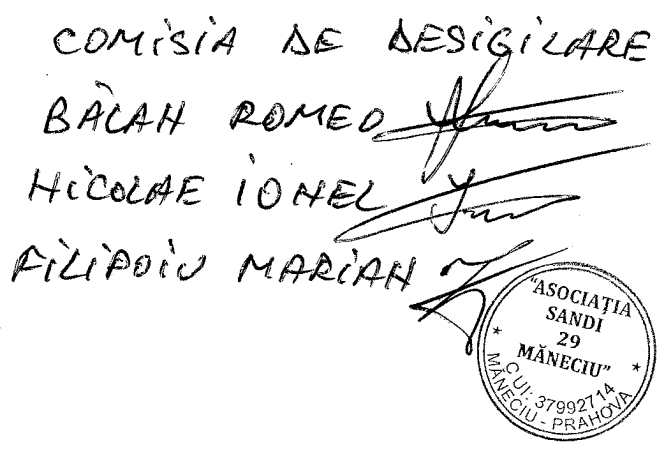 COMISIA DE DESIGILARE
BÂCAN ROMEO
NICOLAE IONEL
FILIPOIU MARIAN
"ASOCIAȚIA
SANDI
29
MĂNECIU"
CUI: 37992714
MĂNECIU - PRAHOVA